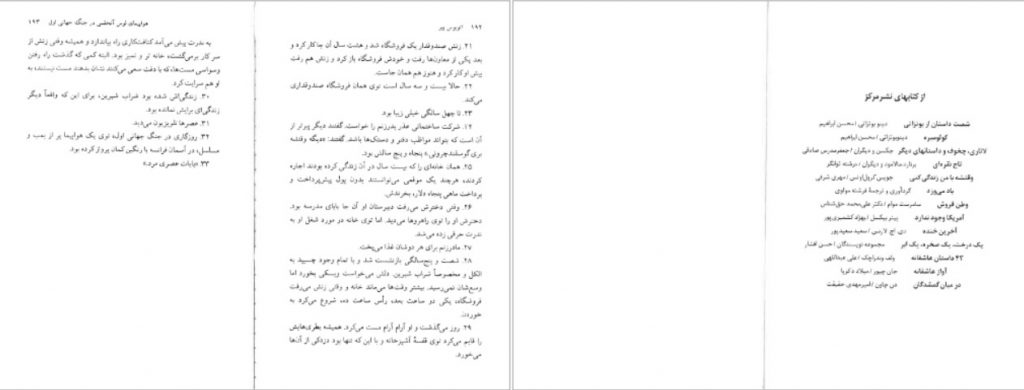 ۱۹۲ اتوبوس پیر
۲۱. زنش صندوقدار یک فروشگاه شد و هشت سال آن جا کار کرد و
بعد یکی از معاون‌ها رفت و خودش فروشگاه باز کرد و زنش هم رفت
پیش او کار کرد و هنوز هم همان جاست.
۲۲. حالا بیست و سه سال است توی همان فروشگاه صندوقداری
می‌کند.
۲۳. تا چهل سالگی خیلی زیبا بود.
۲۴. شرکت ساختمانی عذر پدرزنم را خواست. گفتند دیگر پیرتر از
آن است که بتواند مواظب دفتر و دستک‌ها باشد. گفتند: «دیگه وقتشه
بری گوسفندچرونی.» پنجاه و پنج سالش بود.
۲۵. همان خانه‌ای را که بیست سال در آن زندگی کرده بودند اجاره
کردند، هرچند یک موقعی می‌توانستند بدون پول پیش‌پرداخت و
پرداخت ماهی پنجاه دلار، بخرندش.
۲۶. وقتی دخترش می‌رفت دبیرستان او آن جا بابای مدرسه بود.
دخترش او را توی راهروها می‌دید. اما توی خانه در مورد شغل او به
ندرت حرفی زده می‌شد.
۲۷. مادرزنم برای هر دوشان غذا می‌پخت.
۲۸. شصت و پنج‌سالگی بازنشست شد و با تمام وجود چسبید به
الکل و مخصوصاً شراب شیرین. دلش می‌خواست ویسکی بخورد اما
وسع‌شان نمی‌رسید. بیشتر وقت‌ها می‌ماند خانه و وقتی زنش می‌رفت
فروشگاه، یکی دو ساعت بعد، رأس ساعت ده، شروع می‌کرد به
خوردن.
۲۹. روز می‌گذشت و او آرام آرام مست می‌کرد. همیشه بطری‌هایش
را قایم می‌کرد توی قفسهٔ آشپزخانه و با این که تنها بود دزدکی از آن‌ها
می‌خورد.
هواپیمای لوس آنجلسی در جنگ جهانی اول ۱۹۳
به ندرت پیش می‌آمد کثافتکاری راه بیاندازد و همیشه وقتی زنش از
سر کار برمی‌گشت، خانه تر و تمیز بود. البته کمی که گذشت راه رفتن
وسواسی مست‌ها، که با دقت سعی می‌کنند نشان بدهند مست نیستند به
او هم سرایت کرد.
۳۰. زندگی‌اش شده بود شراب شیرین، برای این که واقعاً دیگر
زندگی‌ای برایش نمانده بود.
۳۱. عصرها تلویزیون می‌دید.
۳۲. روزگاری در جنگ جهانی اول، توی یک هواپیما پر از بمب و
مسلسل، در آسمان فرانسه با رنگین کمان پرواز کرده بود.
۳۳. «بابات عصری مرد.»
از کتابهای نشر مرکز
شصت داستان از بوتزاتی دینو بوتزاتی / محسن ابراهیم
کولومبره دینوبوتزاتی / محسن ابراهیم
لاتاری، چخوف و داستانهای دیگر جکسن و دیگران / جعفر مدرس صادقی
تاج نقره‌ای برنارد مالامود و دیگران / فرشته توانگر
وقتشه با من زندگی کنی جویس کرول اوتس / مهری شرفی
باد می‌وزد گردآوری و ترجمهٔ فرشته مولوی
وطن فروش سامرست موام / دکتر علی‌محمد حق‌شناس
آمریکا وجود ندارد پیتر بیکسل / بهزاد کشمیری‌پور
آخرین خنده دی. اچ. لارنس / سعید سعیدپور
یک درخت، یک صخره، یک ابر مجموعه نویسندگان / حسن افشار
۴۳ داستان عاشقانه ولف وندراچک / علی عبداللهی
آواز عاشقانه جان چیور / میلاد ذکریا
در میان گمشدگان دن چاون / امیرمهدی حقیقت